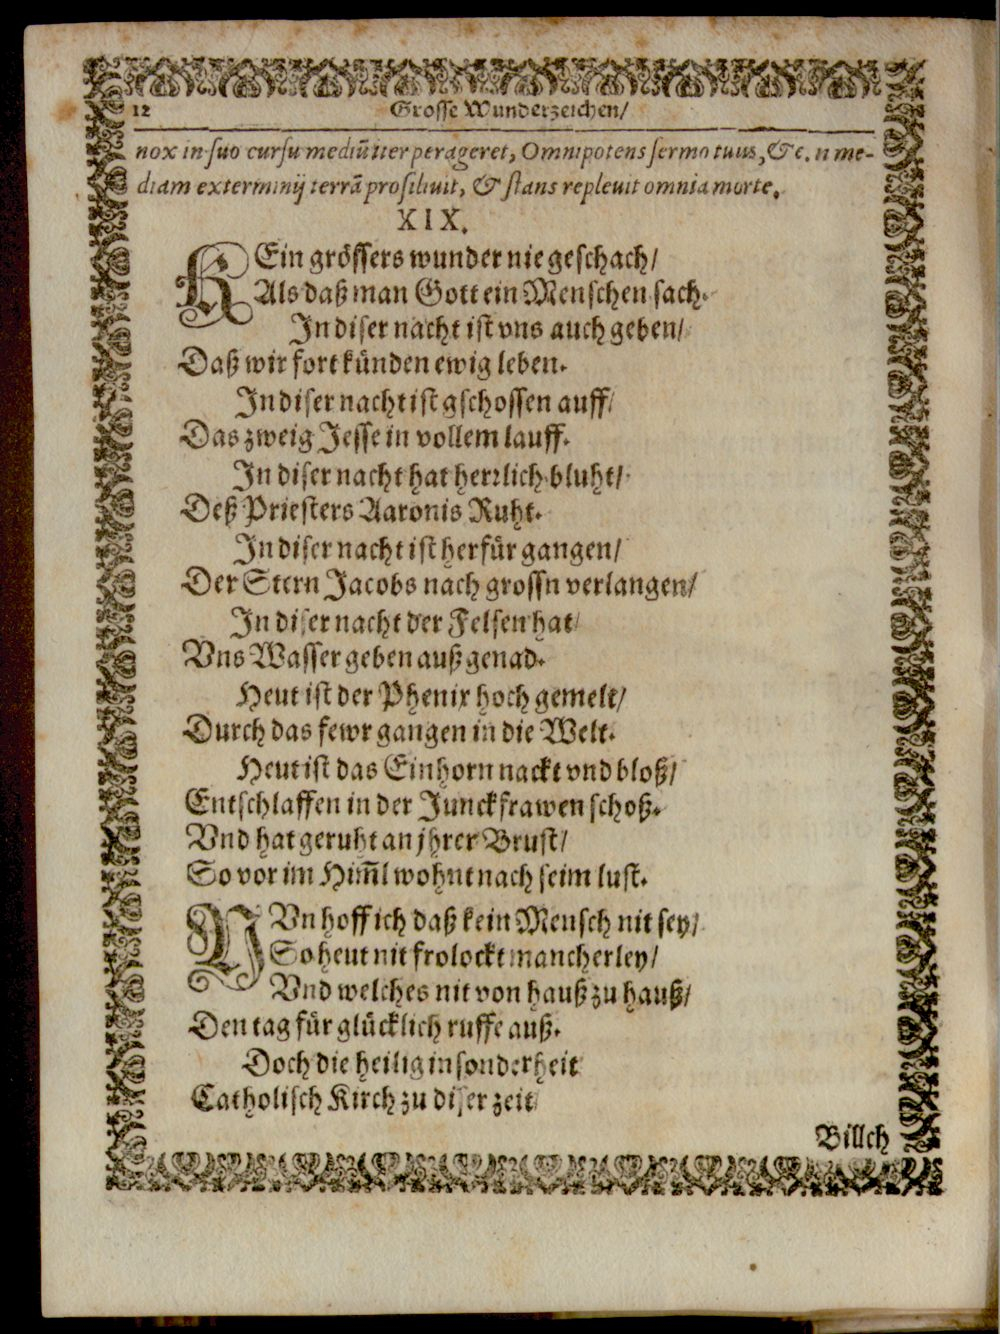 12 Grosse Wunderzeichen/
nox in suo cursu mediũ iter perageret, Omnipotens sermo tuus, &c. in me-
diam exterminij terrã prosilivit, & stans replevit omnia morte.
XIX.
KEin grössers wunder nie geschach/
Als daß man Gott ein Menschen sach.
In diser nacht ist vns auch geben/
Daß wir fort künden ewig leben.
In diser nacht ist gschossen auff/
Das zweig Jesse in vollem lauff.
In diser nacht hat herrlich bluht/
Deß Priesters Aaronis Ruht.
In diser nacht ist herfür gangen/
Der Stern Jacobs nach grossn verlangen/
In diser nacht der Felsen hat/
Vns Wasser geben auß genad.
Heut ist der Phenix hoch gemelt/
Durch das fewr gangen in die Welt.
Heut ist das Einhorn nackt vnd bloß/
Entschlaffen in der Junckfrawen schoß.
Vnd hat geruht an jhrer Brust/
So vor im Him̃l wohnt nach seim lust.
NVn hoff ich daß kein Mensch nit sey/
So heut nit frolockt mancherley/
Vnd welches nit von hauß zu hauß/
Den tag für glücklich ruffe auß.
Doch die heilig insonderheit
Catholisch Kirch zu diser zeit/
Billch